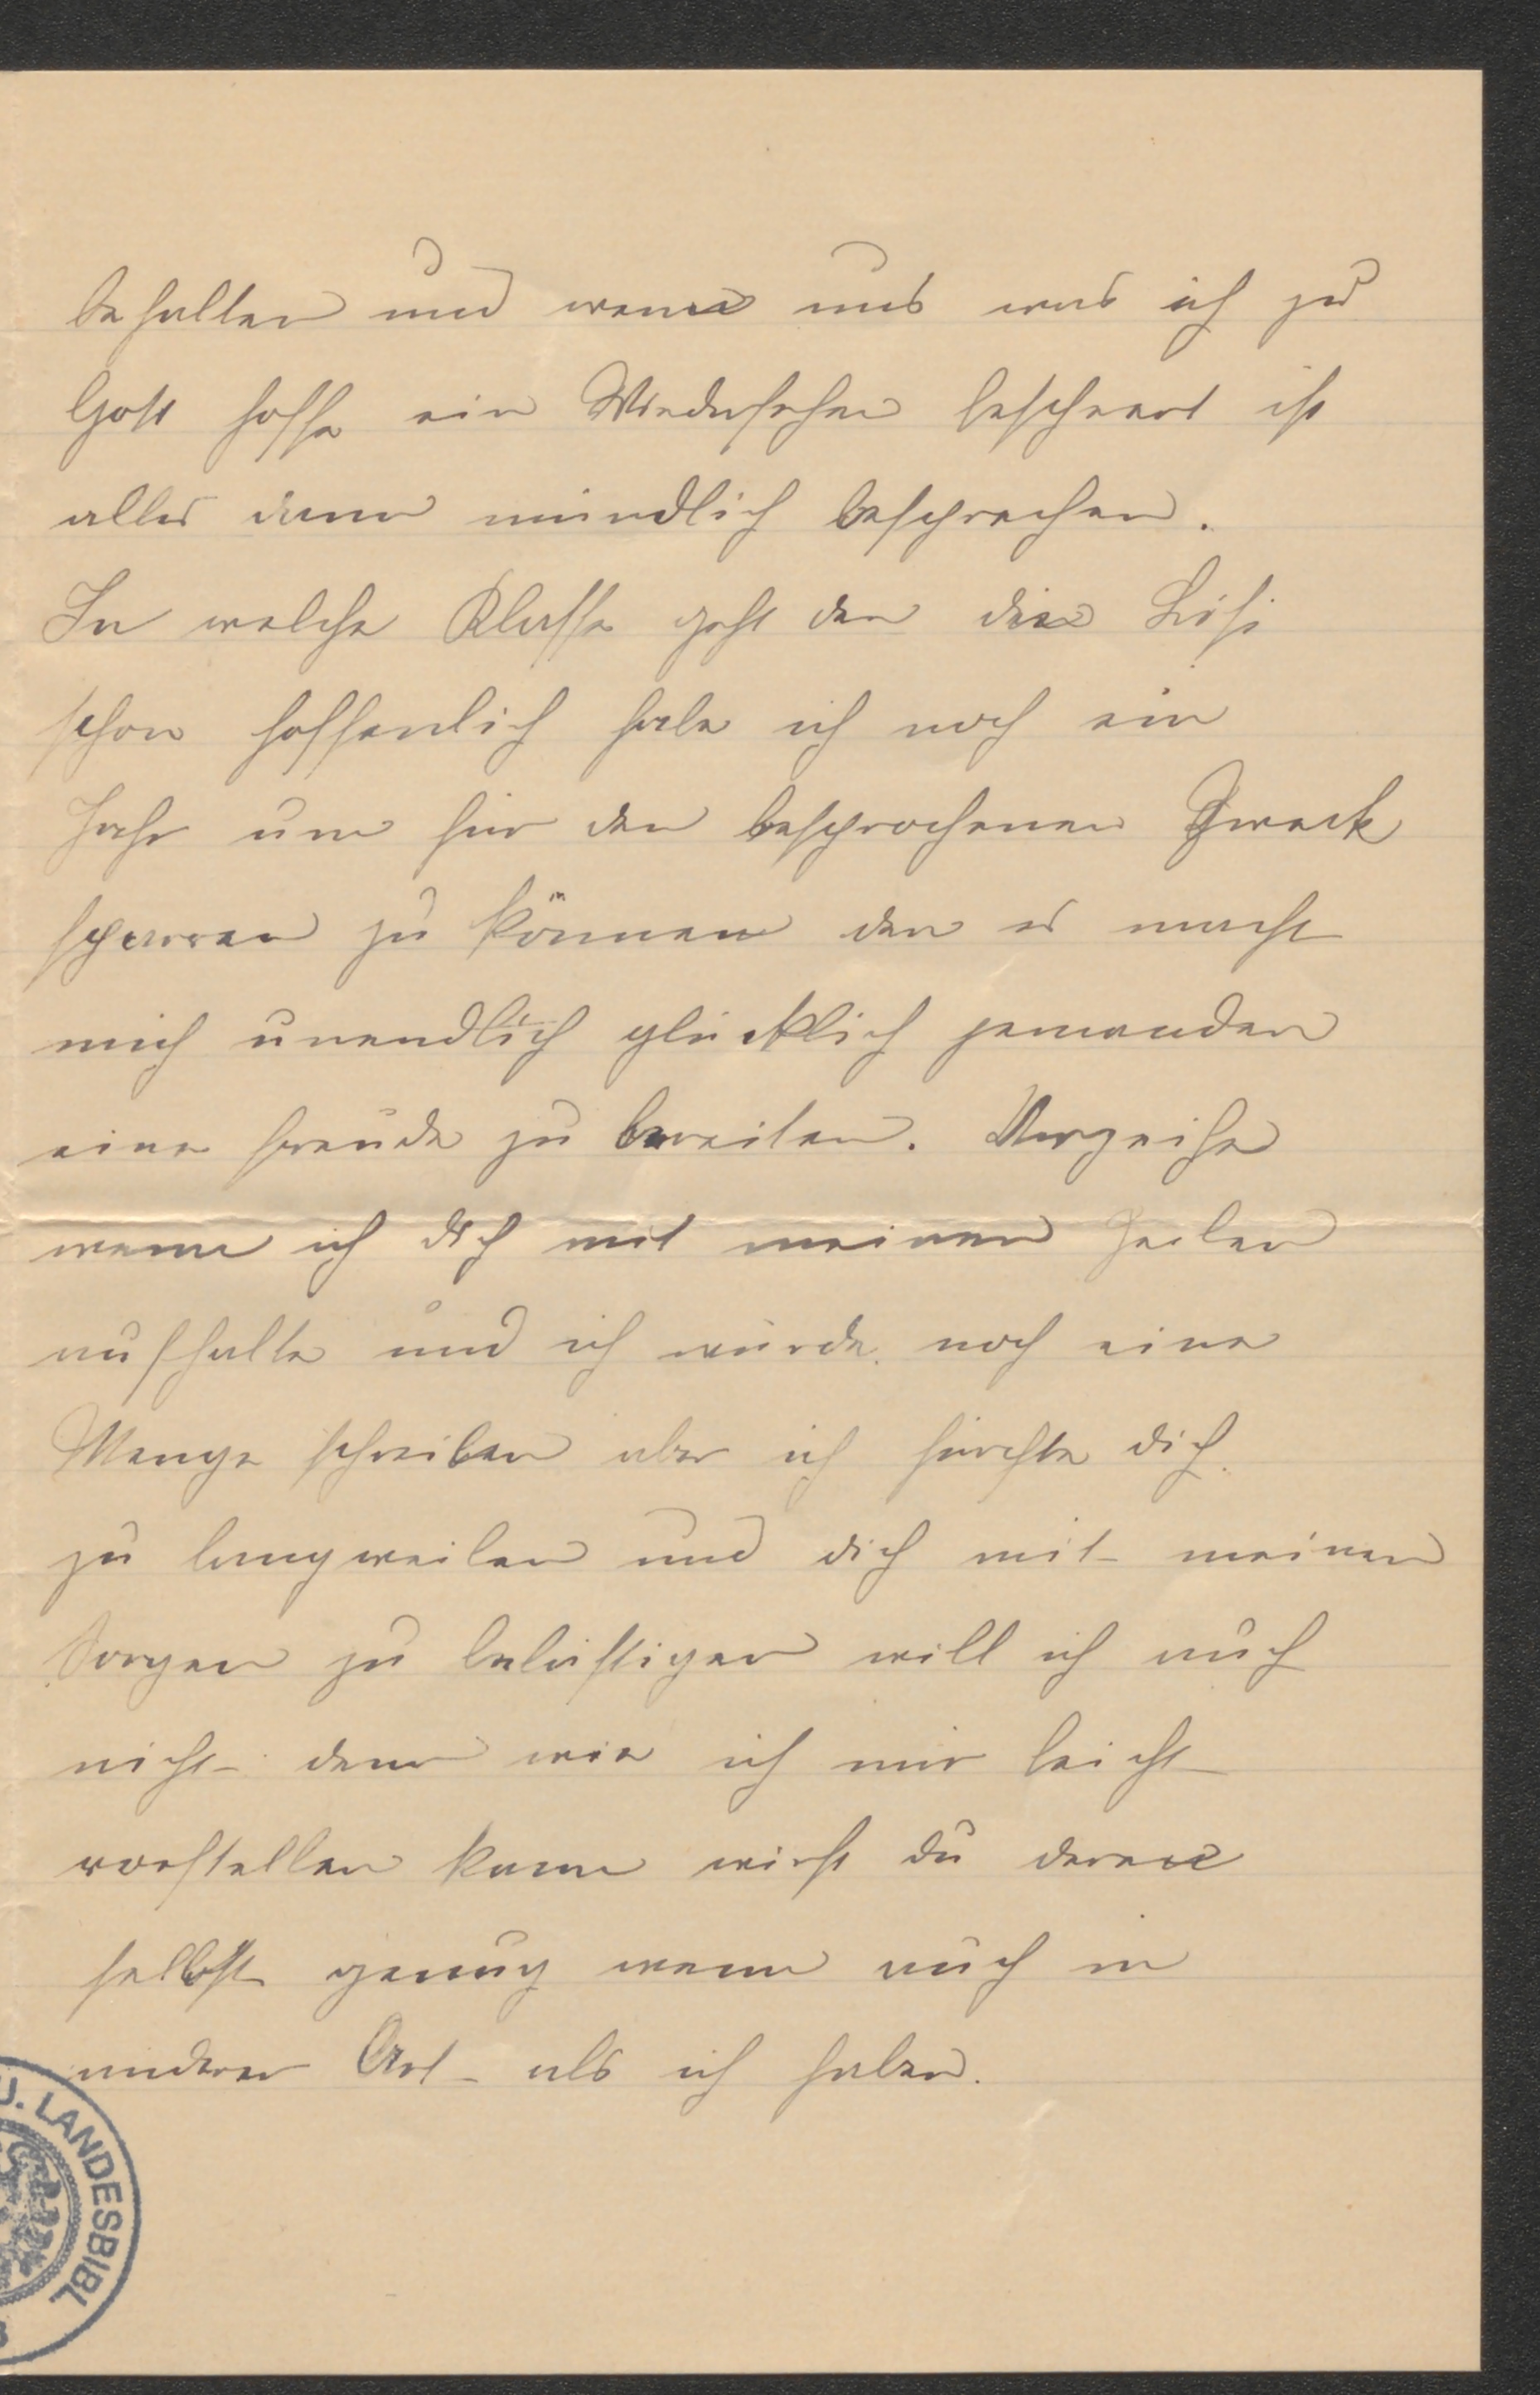 behalten und wenn uns was ich zu
Gott hoffe ein Wiedersehen bescheert ist
alles dann mündlich besprechen.
In welche Klasse geht den die Lisi
schon hoffenlich habe ich noch ein
Jahr um für den besprochenen Zweck
sparren zu können den es macht
mich unendlich glücklich jemanden
eine Freude zu bereiten. Verzeihe
wenn ich dich mit meinen Zeilen
aufhalte und ich würde noch eine
Menge schreiben aber ich fürchte dich
zu langweilen und dich mit meinen
Sorgen zu belästigen will ich auch
nicht denn wie ich mir leicht
vorstellen kann wirst du deren
selbst genug wenn auch in
anderer Art als ich haben.
U. LANDESBIBL